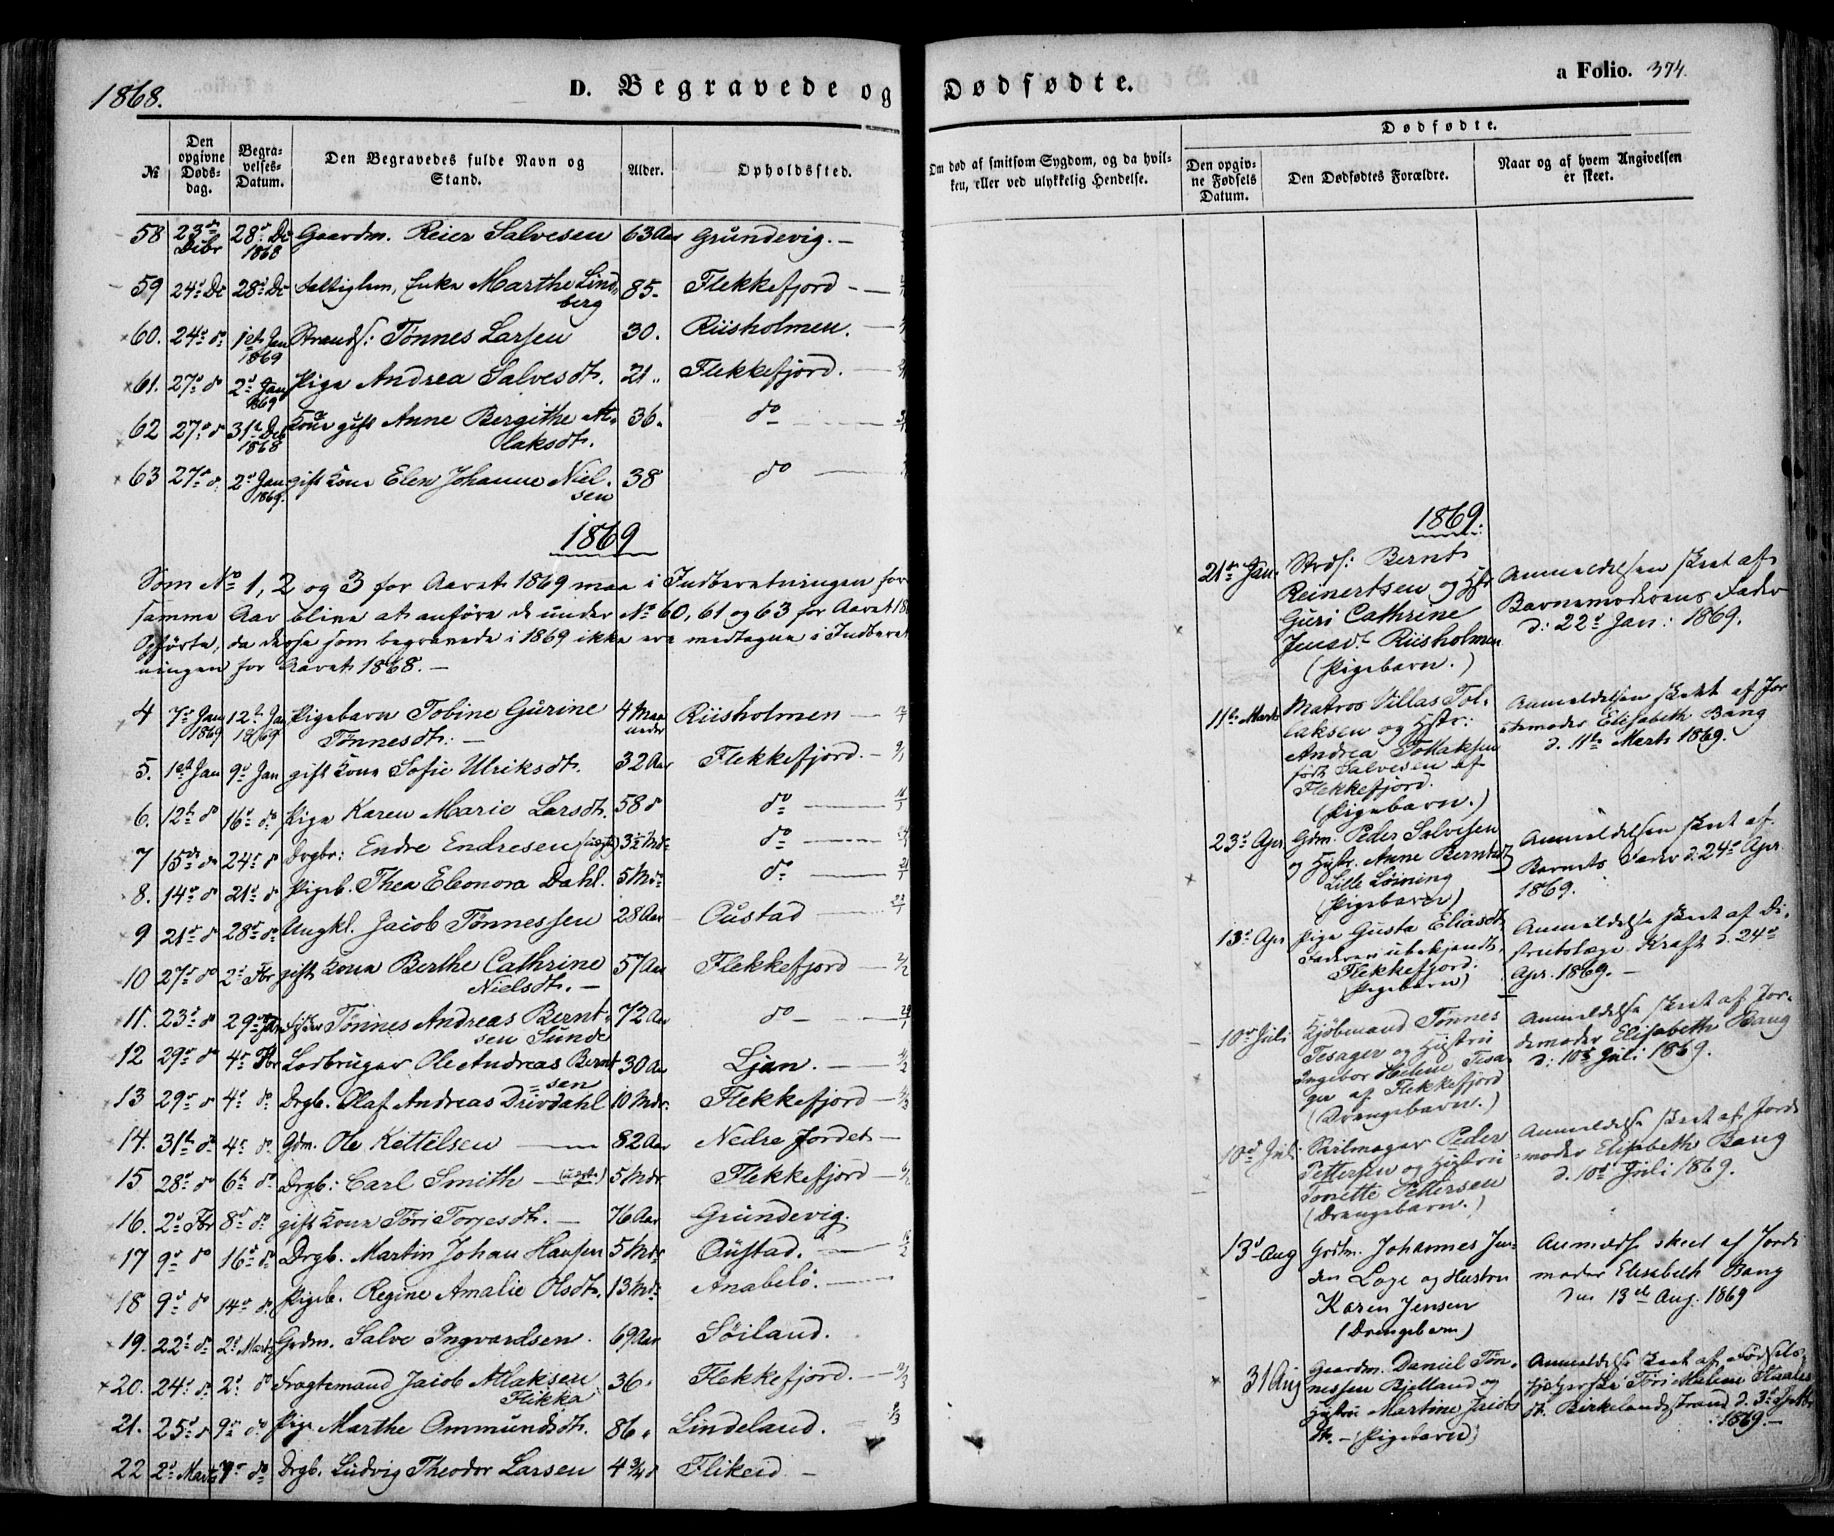 1868.
D. Begravede og Dødfødte.
a Folio. 374.
№
Den opgivne Døds-dag.
Begra-velses-Datum.
Den Begravedes fulde Navn og Stand.
Alder.
Opholdssted.
Om død af smitsom Sygdom, og da hvil-ken, eller ved ulykkelig Hendelse.
Dødfødte.
Den opgiv-ne Fødsels Datum.
Den Dødfødtes Forældre.
Naar og af hvem Angivelsen er skeet.
58 23de Decbr 28de De 1868 Gaardm. Reier Salvesen 63 Aar Grundevig. —
59 24de De 28de De Fattiglem, Enke Marthe Lindberg 85. Flekkefjord —
60. 24de do 1ste Jan 1869 Strands: Tønnes Larsen 30. Riisholmen. —
61. 27de do 2d Jan 1869 Pige Andrea Salvesdt. 21 „ Flekkefjord. —
62 27de do 31te Dec 1868 Kone gift Anne Bergithe At-
laksdt. 36. do —
63 27de do 2d Jan 1869. gift Kone Elen Johanne Niel-
sen 38 do —
1869
Som No 1, 2 og 3 for Aaret 1869 maa i Indberetningen for
samme Aar blive at anføre de under No 60, 61 og 63 for Aaret 18
Opførte, da disse som begravede i 1869 ikke ere medtagne i Indberet
ningen for Aaret 1868. —
4 7de Jan 1869 12te Jan 1869 Pigebarn Tobine Gurine
Tønnesdt: — 4 Maa
neder Riisholmen —
5. 1ste Jan 9de Jan gift Kone Sofie Ulriksdt. 32 Aar Flekkefjord. —
6. 12te do 16de do Pige Karen Marie Larsdt. 58 do do —
7 15de do 24de do Drgbr: Endre Endresen 3½ Mdr do —
8. 14de do 21de do Pigeb. Thea Eleonora Dahl. 5 Mdr do —
9 21de do 28de do Ungkl. Jacob Tønnessen 28 Aar Oustad —
10 27de do 2d Fbr gift Kone Berthe Cathrine
Nielsdt. — 57 Aar Flekkefjord —
11. 23de do 29de Jan Tønnes Andreas Bernt-
sen Sunde 72 Aar do —
12 29de do 4de Fbr Lodbruger Ole Andreas Bernt
=sen 30 Aar Ljan. —
13 29de do 4de do Drgb. Olaf Andreas Drivdahl 10 Mdr. Flekkefjord —
14. 31te do 4de do Gdm. Ole Kettelsen — 82 Aar Nedre Jordet —
15 28de do 6te do Drgb: Carl Smith — 5 Mdr Flekkefjord —
16. 2d Fbr 8de do gift Kone Tøri Torjesdt. — 76 Aar Grundevig.
17 9de do 16de do Drgb. Martin Johan Hansen 5 Mdr Oustad. —
18 9de do 14de do Pigeb. Regine Amalie Olsdt. 13 Mdr Anabelø. —
19. 22de do 2d Marts Grdm. Salve Ingvardsen. 69 Aar Søiland.
20. 24de do 2d do Fragtemand Jacob Atlaksen
Flikka 36. Flekkefjord. —
21. 25de do 9de do Pige Marthe Ommundsdt. 86. Lindeland.
22 2d Marts 9de do Drgb. Ludvig Theodor Larsen 4 ¾ do Flikeid —
1869.
21de Jan. Strds: Bernt
Reinertsen og Hstr
Guri Cathrine
Jensdt. Riisholmen
(Pigebarn.)
Anmeldelsen skeet af
Barnemoderens Fader
d: 22de Jan: 1869.
11te Marts Matros Villas Tol-
laksen og Hstr:
Andrea Tollaksen
født Salvesen af
Flekkefjord.
(Pigebarn.)
Anmeldelsen skeet af Jor
demoder Elisabeth Bang
d. 11te Marts 1869.
23de Apr Gdm. Peder Salvesen
og Hustr. Anne Berntsdt
Lille Løining
(Pigebarn)
Anmeldelsen skeet af
Barnets Fader d. 24de Apr
1869.
13de Apr Pige Gusta Eliasdt.
Faderen ubekjendt.
Flekkefjord.
(Pigebarn)
Anmeldelse skeet af Di-
strictslæge Kraft d. 24de
Apr. 1869. —
10de Juli Kjøbmand Tønnes
Tesager og Hustru
Ingebor Helene Tesa-
ger af Flekkefjord
(Drengebarn.)
Anmeldelse skeet af Jor-
demoder Elisabeth Bang
d: 10de Juli 1869.
10de Juli Seilmager Peder
Pettersen og Hustru
Tonette Pettersen
(Drengebarn.)
Anmeldelse skeet af Jorde
moder Elisabeth Bang
d. 10de Juli 1869.
13de Aug Grdm. Johannes Jen-
sen Loge og Hustru
Karen Jensen
(Drengebarn)
Anmeldse skeet af Jorde
moder Elisabeth Bang
den 13de Aug. 1869
31 Aug Gaardm. Daniel Tøn-
nessen Bjelland og
Hustru Martine Jacobs
dt. — (Pigebarn)
Anmeldelse skeet af Fødsels-
hjelperske Tøri Malene Eliaba
dt. Birkelandsstrand d. 3de Septbr
1869. —